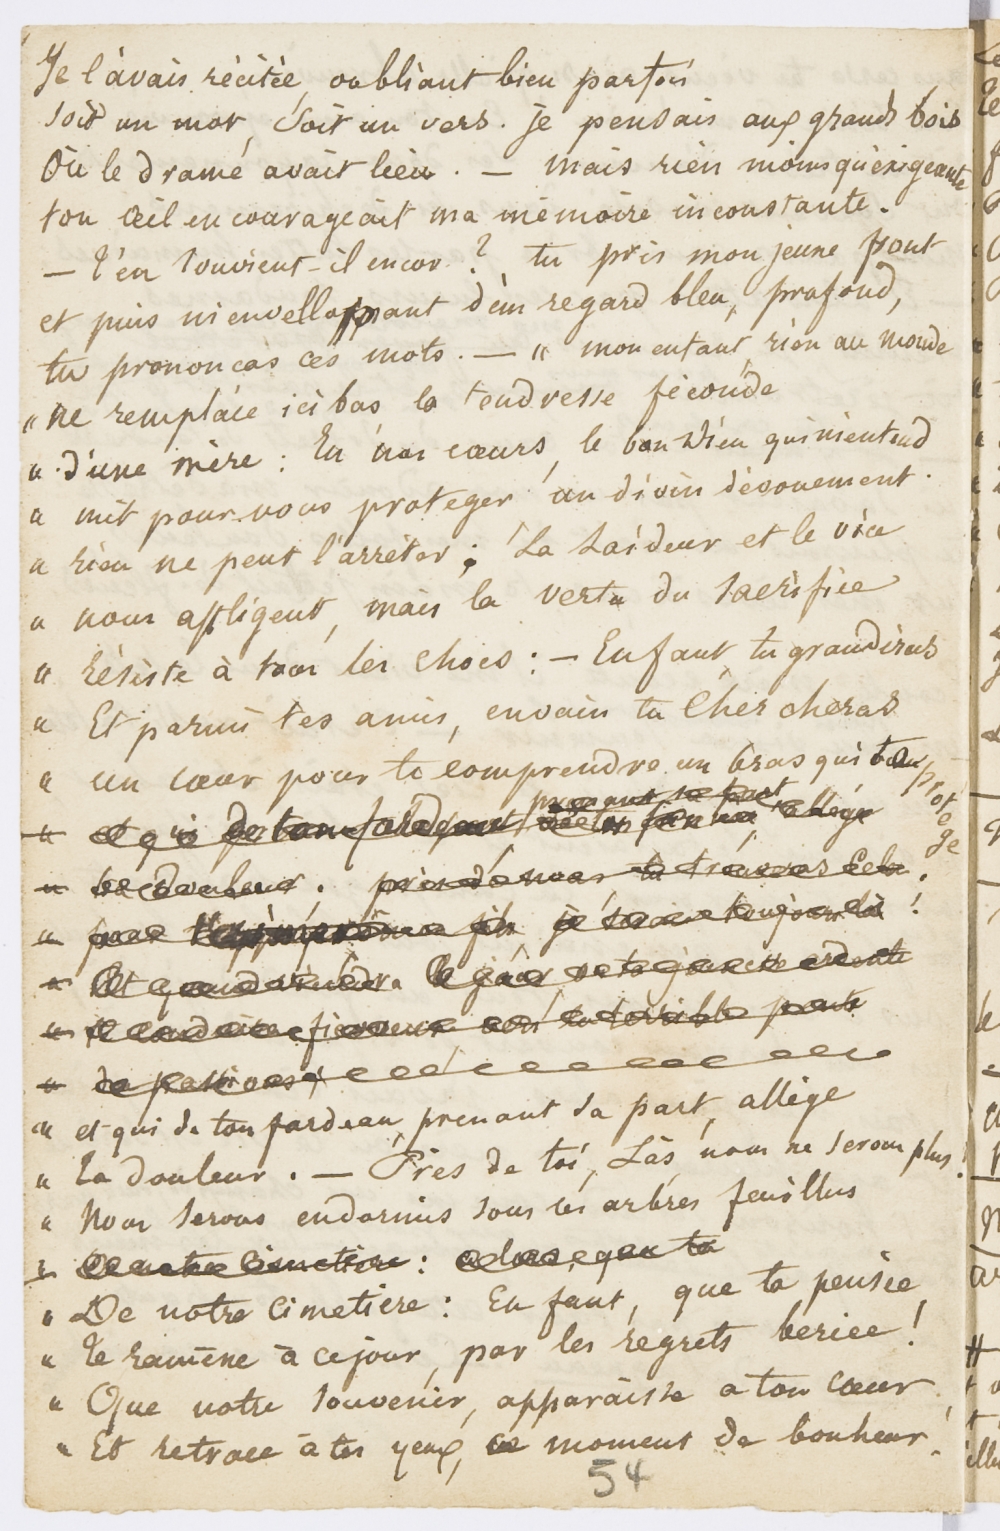 Je l'avais récitée, oubliant bien parfois
soit un mot, soit un vers. je pensais aux grands bois
Où le drame avait lieu. — mais rien moins qu'exigeante
ton œil encourageait ma mémoire inconstante.
— T'en souvient-il encor ? tu pris mon jeune front
et puis m'envelloppant d'un regard bleu, profond,
tu prononcas ces mots. — " mon enfant, rien au monde
" Ne remplace ici bas la tendresse féconde
" d'une mère : En nos cœurs, le bon Dieu qui m'entend
" mit pour vous proteger un divin dévouement.
" rien ne peut l'arrêter ; La Laideur et le vice
" nous affligent, mais la vertu du sacrifice
" Résiste à tous les chocs : — Enfant, tu grandiras
" Et parmi tes amis, envain tu chercheras
" un cœur pour te comprendre un bras qui te protège
prenant sa part
" et qui de ton fardeau allége
" ta douleur. près de nous tu trouveras cela.
" mon fils je serai toujours là !
" Et quand viendra le jour où ta jeunesse ardente
" te conduira fievreux vers la terrible pente
" des passions
" et qui de ton fardeau, prenant sa part, allège
" ta douleur. — Près de toi, Las, nous ne serons plus !
" Nous serons endormis sous les arbres feuillus
" De notre cimetière : que ta
" De notre cimetiere : Enfant, que ta pensée
" Te ramène à ce jour, par les regrets bercee !
" Que notre souvenir, apparaisse a ton cœur,
" Et retrace à tes yeux, ce moment de bonheur.
54